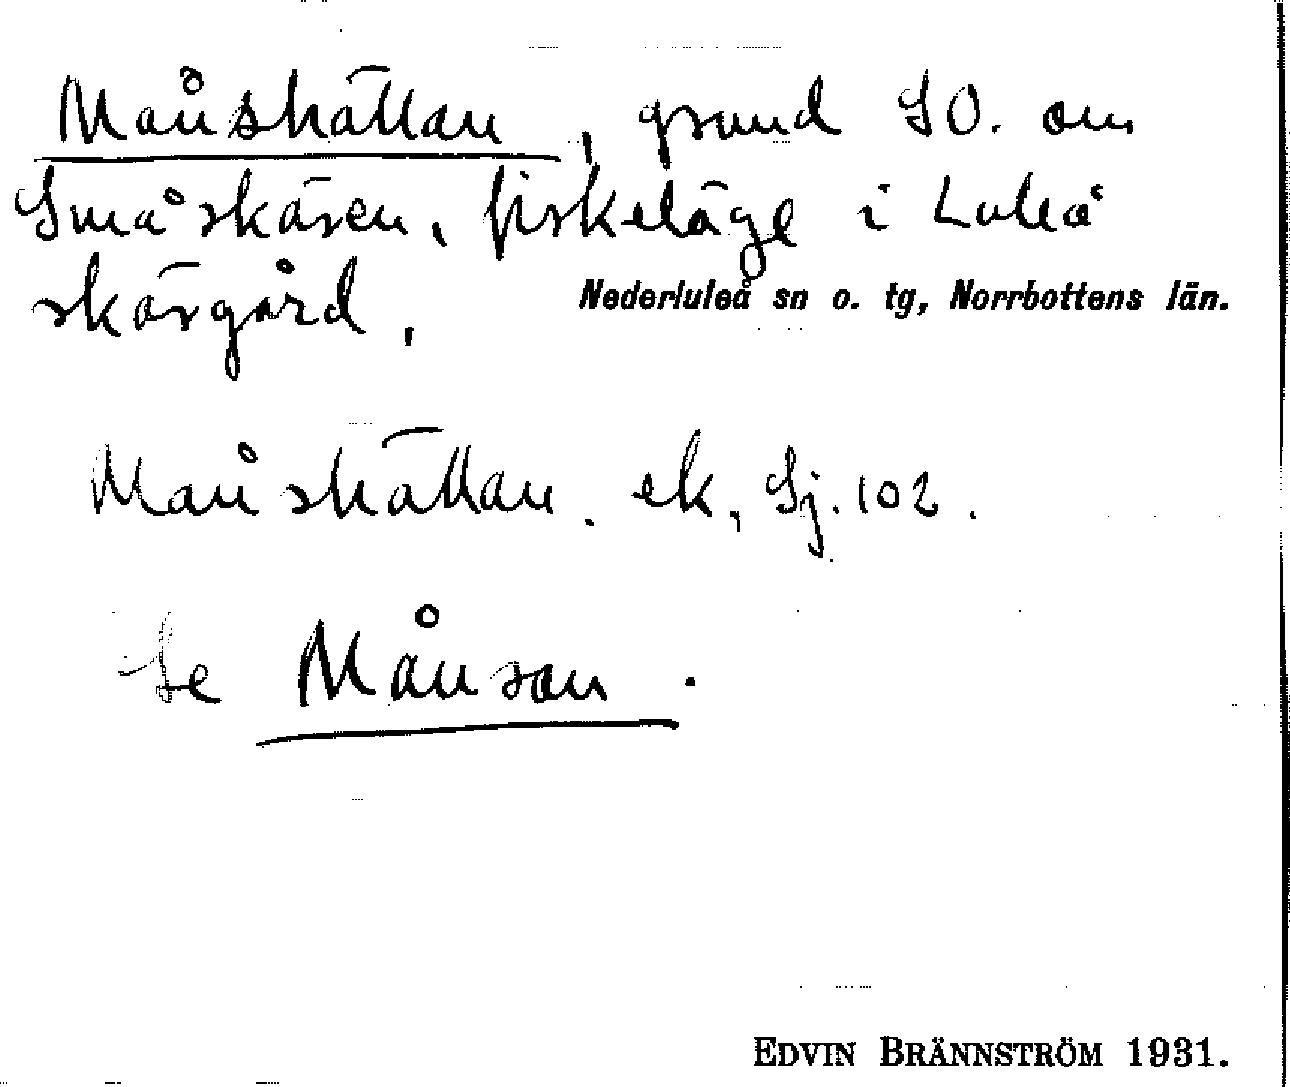 Månshällan, grund SO. om
Småskären, fiskeläge i Luleå
skärgård,
Nederluleå sn o. tg, Norrbottens län.
Månshällan. ek, Sj. 102.
Se Månsan.
EDVIN BRÄNNSTRÖM 1931.